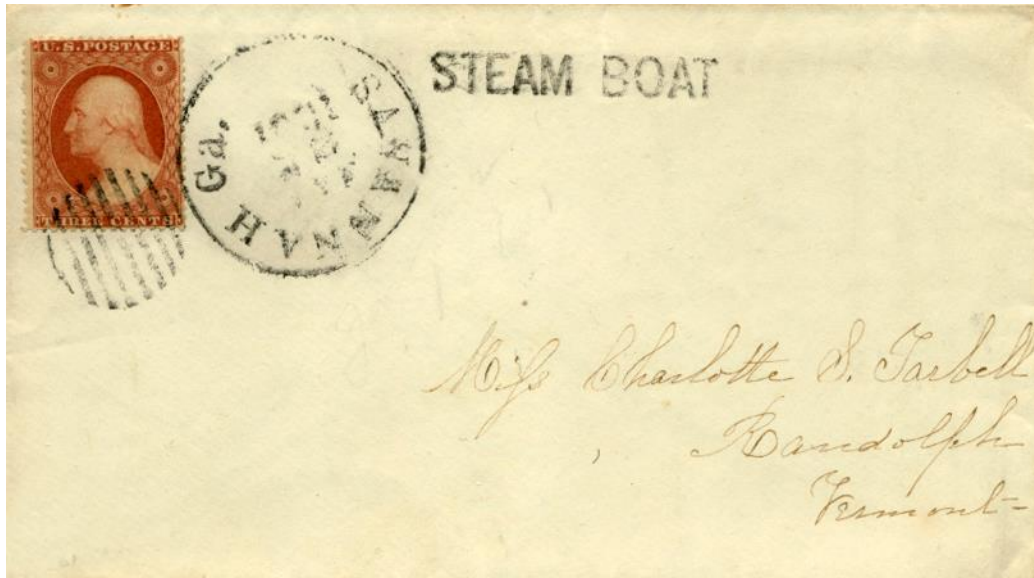 U.S. POSTAGE
THREE CENTS
SAVANNAH Ga.
STEAM BOAT
Miss Charlotte S. Tarbell
Randolph
Vermont